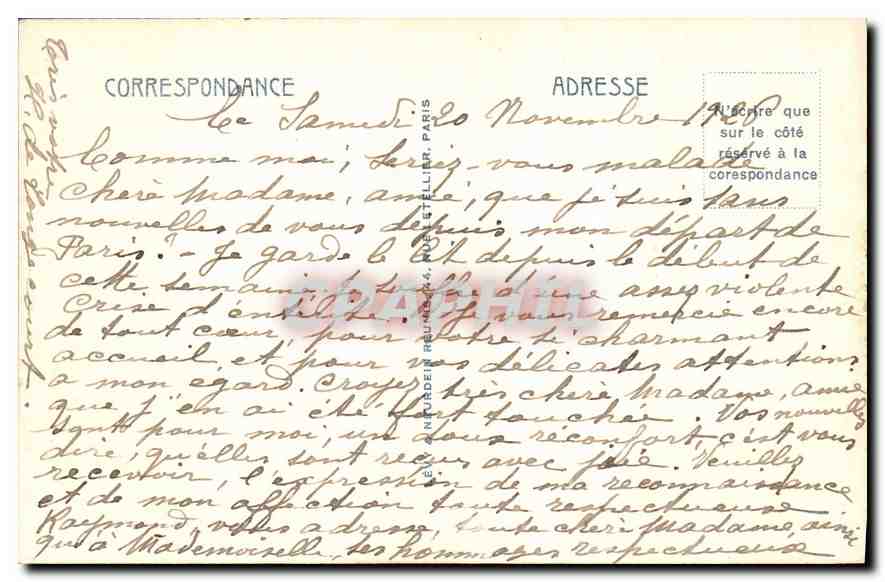 CORRESPONDANCE
ADRESSE
N'écrire que
sur le côté
réservé à la
corespondance
Ce Samedi 20 Novembre 1926
Comme moi, seriez-vous malade
chère Madame, amie, que je suis sans
nouvelles de vous depuis mon départ de
Paris? - Je garde le lit depuis le début de
cette semaine, je souffre d'une assez violente
crise d'entérite. Je vous remercie encore
de tout cœur, pour votre si charmant
accueil, et pour vos délicates attentions
a mon égard. Croyez, très chère Madame, amie
que j'en ai été fort touchée. Vos nouvelles
sont pour moi, un doux réconfort, c'est vous
dire, qu'elles sont reçues avec joie. Veuillez
recevoir, l'expression de ma reconnaissance
et de mon affection toute respectueuse
Raymond, vous adresse, toute chère Madame, ainsi
qu'à Mademoiselle, ses hommages respectueux
LÉVY & NEURDEIN RÉUNIS, 44, RUE LETELLIER, PARIS
CPAPHIL